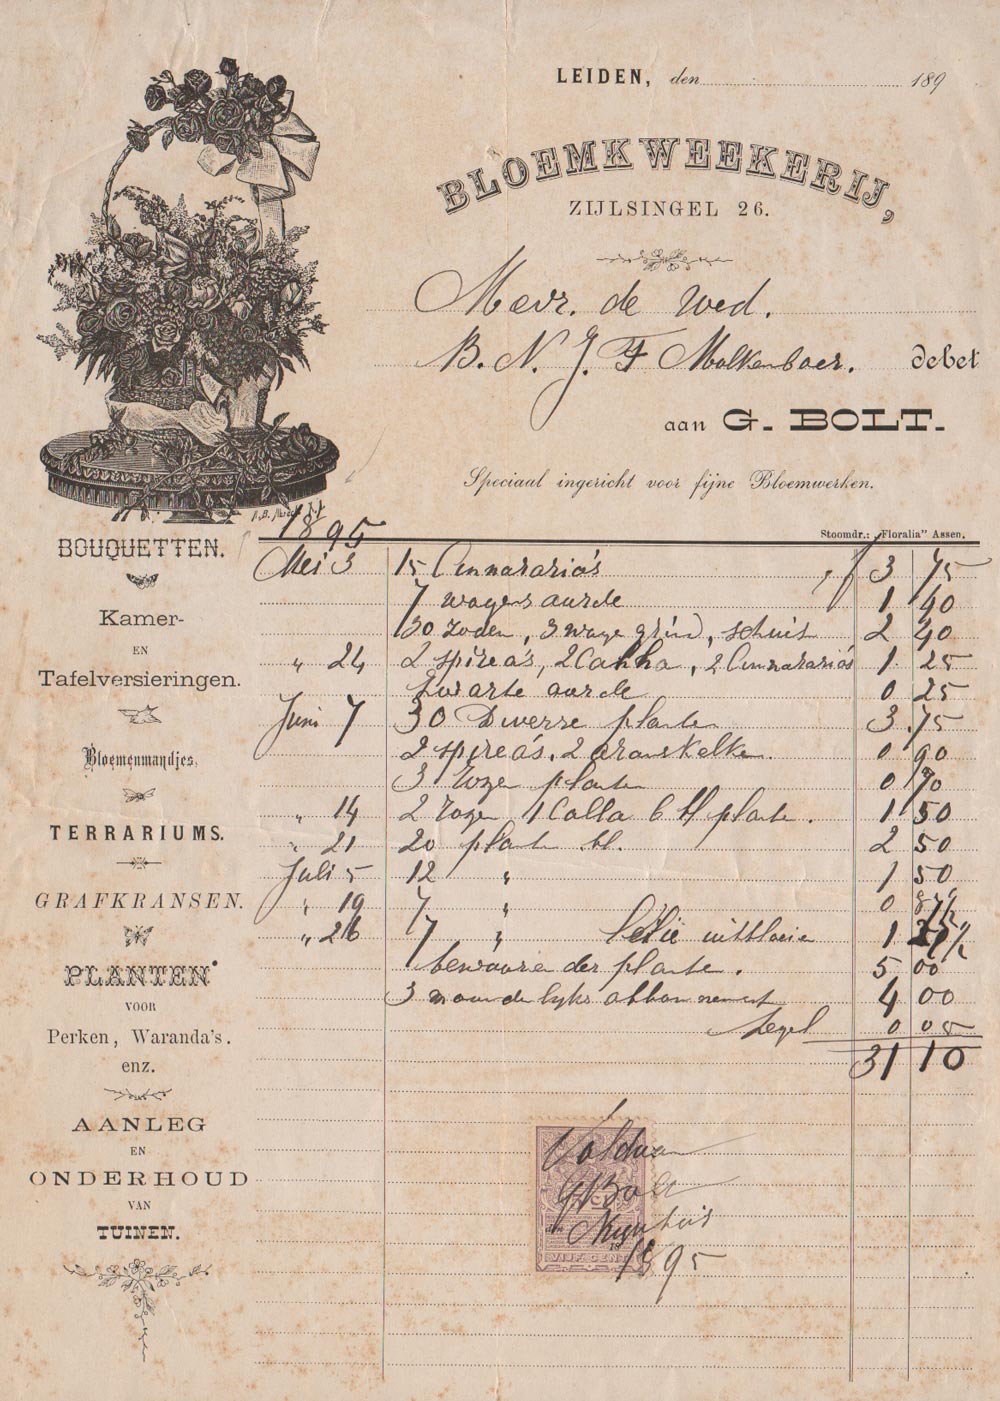 LEIDEN, den 189
BLOEMKWEEKERIJ,
ZIJLSINGEL 26.
Mevr. de wed.
B. N. J. F Molkenboer. debet
aan G. BOLT.
Speciaal ingericht voor fijne Bloemwerken.
Stoomdr.: „Floralia" Assen.
BOUQUETTEN.
Kamer-
EN
Tafelversieringen.
Bloemenmandjes.
TERRARIUMS.
GRAFKRANSEN.
PLANTEN
VOOR
Perken, Waranda's.
enz.
AANLEG
EN
ONDERHOUD
VAN
TUINEN.
1895
Mei 3 15 Cinnararia's f 3 75
7 wagens aarde 1 40
30 zoden, 3 wage grind, schuit 2 40
" 24 2 spirea's, 2 Canna, 2 Cinnararia's 1 25
zwarte aarde 0 25
Juni 7 30 Diverse plante 3.75
2 spirea's, 2 0 90
3 plante 0 70
" 14 2 1 Calla 6 bl plante. 1 50
" 21 20 plante bl. 2 50
Juli 5 12 " 1 50
" 19 7 " 0
" 26 7 " 1
bewaare der plante. 5 00
3 maandelyks abbonnement 4 00
Zegel 0 05
31 10
Voldaan
G Bolt
VIJF CENT
1895